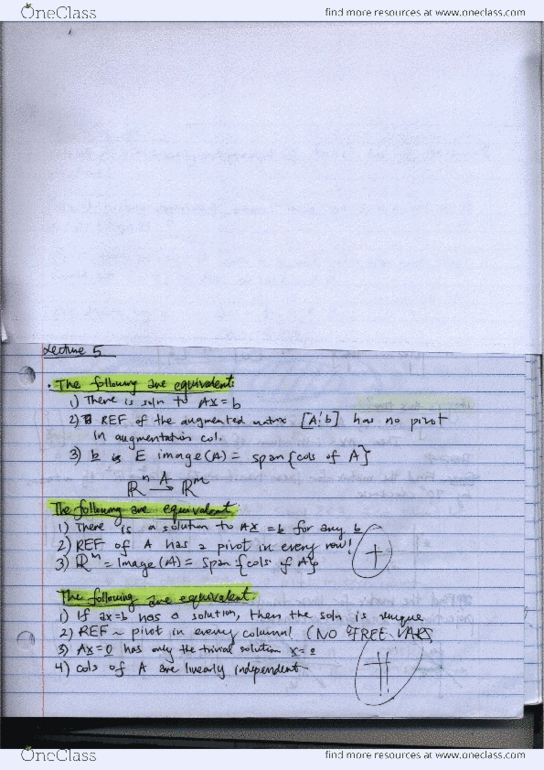 OneClass
find more resources at www.oneclass.com
Lecture 5
. The following are equivalent:
1) There is soln to Ax = b
2) REF of the augmented matrix [A¦b] has no pivot
in augmentation col.
3) b is E image(A) = span{cols of A}
ℝⁿ →ᴬ ℝᵐ
The following are equivalent.
1) There is a solution to Ax = b for any b
2) REF of A has a pivot in every row!
3) ℝᵐ = Image(A) = span{cols of A}
†
The following are equivalent.
1) If ax=b has a solution, then the soln is unique
2) REF ~ pivot in every column! (NO FREE VARS
3) Ax=0 has only the trivial solution x=0
4) cols of A are linearly independent
OneClass
find more resources at www.oneclass.com